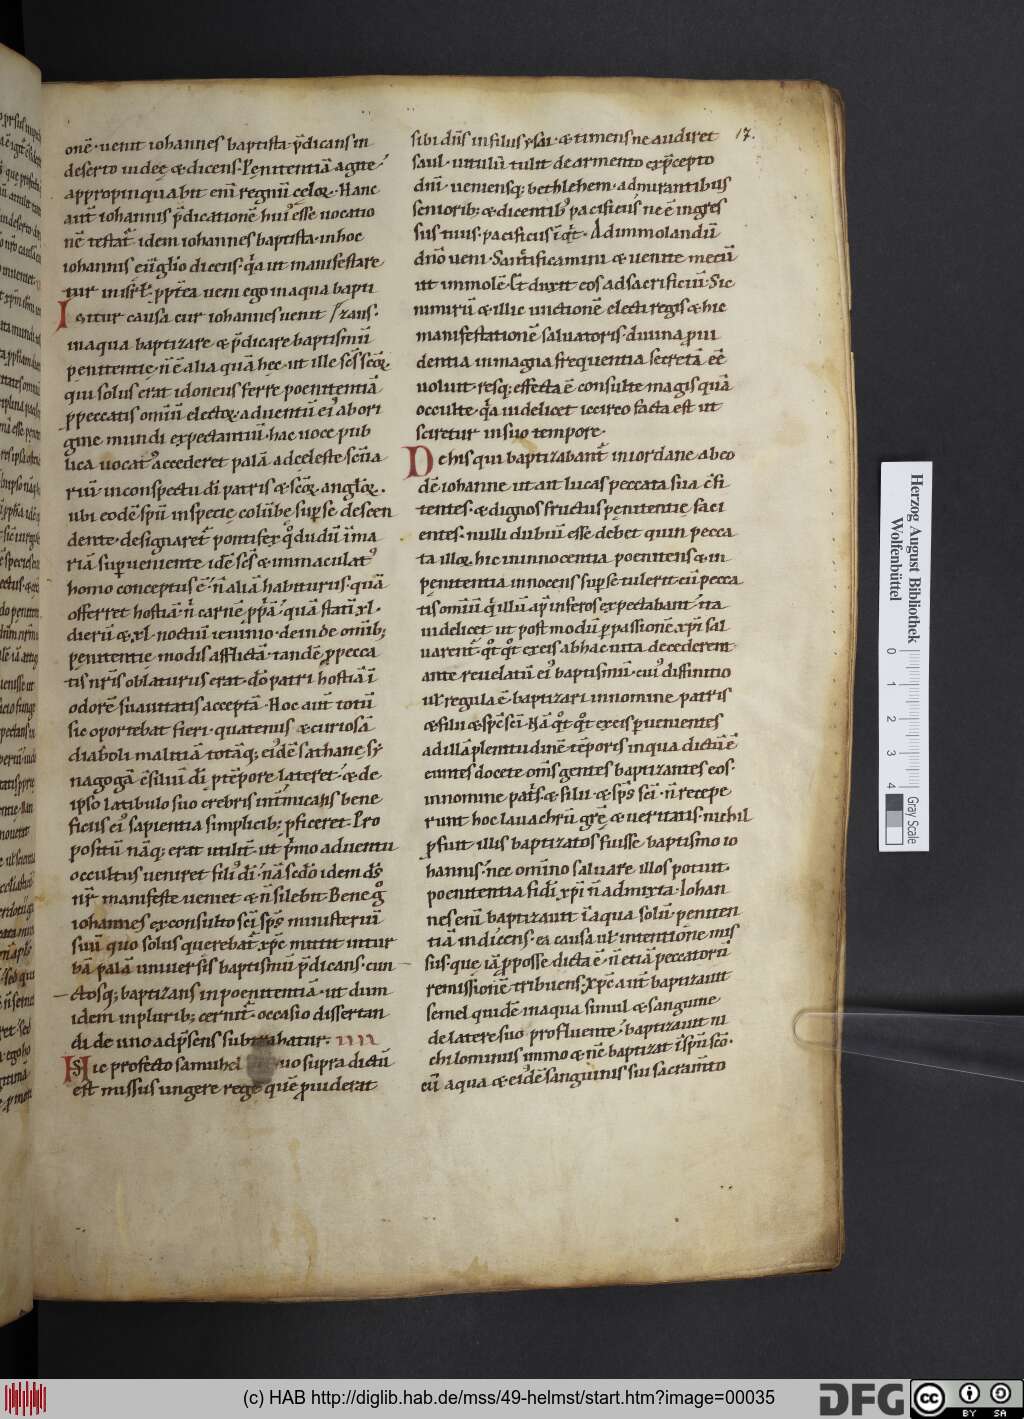 onē·uenit iohannes baptista·p̄dicans in
deserto iudeę·& dicens·Penitentiā agite·
appropinquabit eni᷎ regnū celoꝝ·Hanc
aut᷎ iohannis p̄dicationē hui᷒ esse uocatio
nē testat᷑ idem iohannes baptista·in hoc
iohannis euḡlio dicens·q̄a ut manifestare
tur in isrl̄·ꝓpt̄ea ueni ego in aqua bapti
Igitur causa cur iohannes uenit /zans·
in aqua baptizare & p̄dicare baptismū
penitentię·n̄ ē alia quā hec·ut ille sc̄s sc̄oꝝ
qui solus erat idoneus ferre poenitentiā
ꝓ peccatis omiū electoꝝ·aduentū ei᷒ ab ori
gine mundi expectantiū·hac uoce pub
lica uocat᷒ accederet palā ad celeste sc̄ua
riū·in conspectu dī patris & sc̄oꝝ angl̄oꝝ·
ubi eodē spū in specie colūbę sup̱ se descen
dente·designaret᷑ pontifex q᷒ dudū ī ma
riā sup̱ueniente idē sc̄s & immaculat᷒
homo conceptus ē·n̄ aliā habiturus·quā
offerret hostiā·n̄ carnē ꝓp̄ā·quā statī xl·
dierū & xl·noctiū ieiunio·deinde om̄ib;
penitentię modis afflictā·tandē ꝓ pecca
tis nr̄is oblaturus erat·dō patri hostiā ī
odorē suauitatis acceptā·Hoc aut᷎ totū
sic oportebat fieri·quatenus & curiosā
diaboli malitiā totāq; ei᷒dē sathanę sy
nagogā ē siliū dī p tēpore lateret·& de
ipso latibulo suo crebris int᷎micans bene
ficus ei᷒ sapientia simplicib; ꝓficeret·Pro
positū nāq; erat utilit᷑·ut p̄mo aduentu
occultus ueniret fili᷒ dī·nā sc̄do idem d̄s
nr̄ manifeste ueniet & n̄ silebit·Bene g᷒
iohannes ex consulto sc̄i sp̄s ministeriū
suū quo solus querebat᷑ xp̄c mittit in tur
bā·palā uniuersis baptismū p̄dicans·cun
ctosq; baptizans in poenitentiā·ut dum
idem in plurib; cernit᷑·occasio dissertan
di de uno ad p̄sens subtrahatur· IIII
Hic profecto samuhel uo supra dictū
est missus ungere regē quē p̄uiderat
17.
sibi dn̄s in filiis ysai·& timens ne audiret
saul·uitulū tulit de armento ex p̄cepto
dn̄i·ueniensq; bethlehem·admirantibus
seniorib; & dicentib᷒ pacificus ne ē ingres
sus tuus·pacificus īq̄t·Ad immolandū
dn̄o ueni·Sanctificamini & uenite mecū
ut immolē·Et duxit eos ad sacrificiū·Sic
mirū & illic unctionē electi regis & hic
manifestationē saluatoris·diuina ꝓui
dentia in magna frequentia secretā eē
uoluit·resq; effecta ē consulte magis quā
occulte·q̄a uidelicet iccirco facta est ut
sciretur in suo tempore·
De his qui baptizabant᷑ in iordane ab eo
dē iohanne ut ait lucas peccata sua c̄fi
tentes·& dignos fructus penitentię faci
entes·nulli dubiū esse debet quin pecca
ta illoꝝ·hic in innocentia poenitens & in
penitentia innocens sup̱ se tulerit·cū pecca
tis omiū q̄ illū ap᷒ inferos expectabant·ita
uidelicet ut post modū ꝑ passionē xp̄i sal
uarent᷑ q᷒t q᷒t ex eis ab hac uita decederent
ante reuelatū ei᷒ baptismū·cui᷒ diffinitio
ul̄ regula ē·baptizari in nomine patris
& filii & sp̄c sc̄i·Nā q᷒t q᷒t ex eis ꝑuenientes
ad illā plenitudinē tēporis in qua dictū ē
euntes docete om̄s gentes baptizantes eos·
in nomine pat᷑s·& filii & sp̄s sc̄i·n̄ recepe
runt hoc lauachrū grę̄ & ueritatis·nichil
ꝓfuit illis baptizatos fuisse baptismo io
hannis·nec om̄ino saluare illos potuit·
poenitentia fidi xp̄i n̄ admixta·Iohan
nes eni᷎ baptizauit ī aqua solū·peniten
tiā indicens·ea causa ul̄ intentione mis
sus·que iā ꝓ posse dicta ē·n̄ etiā peccatorū
remissionē tribuens·Xp̄c aut᷎ baptizauit
semel quidē in aqua simul & sanguine
de latere suo profluente·baptizauit ni
chilominus immo & nc̄ baptizat ī sp̄u sc̄o·
cū aqua & ei᷒dē sanguinis sui sacram̄to
Herzog August Bibliothek
Wolfenbüttel
0 1 2 3 4
Gray Scale
(c) HAB http://diglib.hab.de/mss/49-helmst/start.htm?image=00035
DFG
cc BY SA